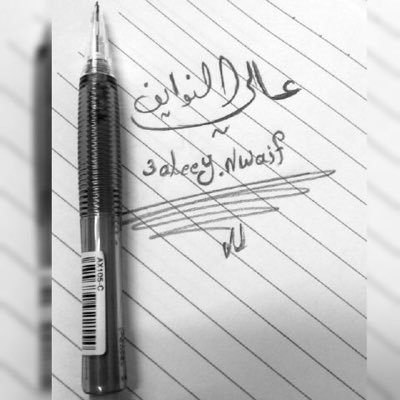 عالي النوايف
3aleey.Nwaif
AX105-C